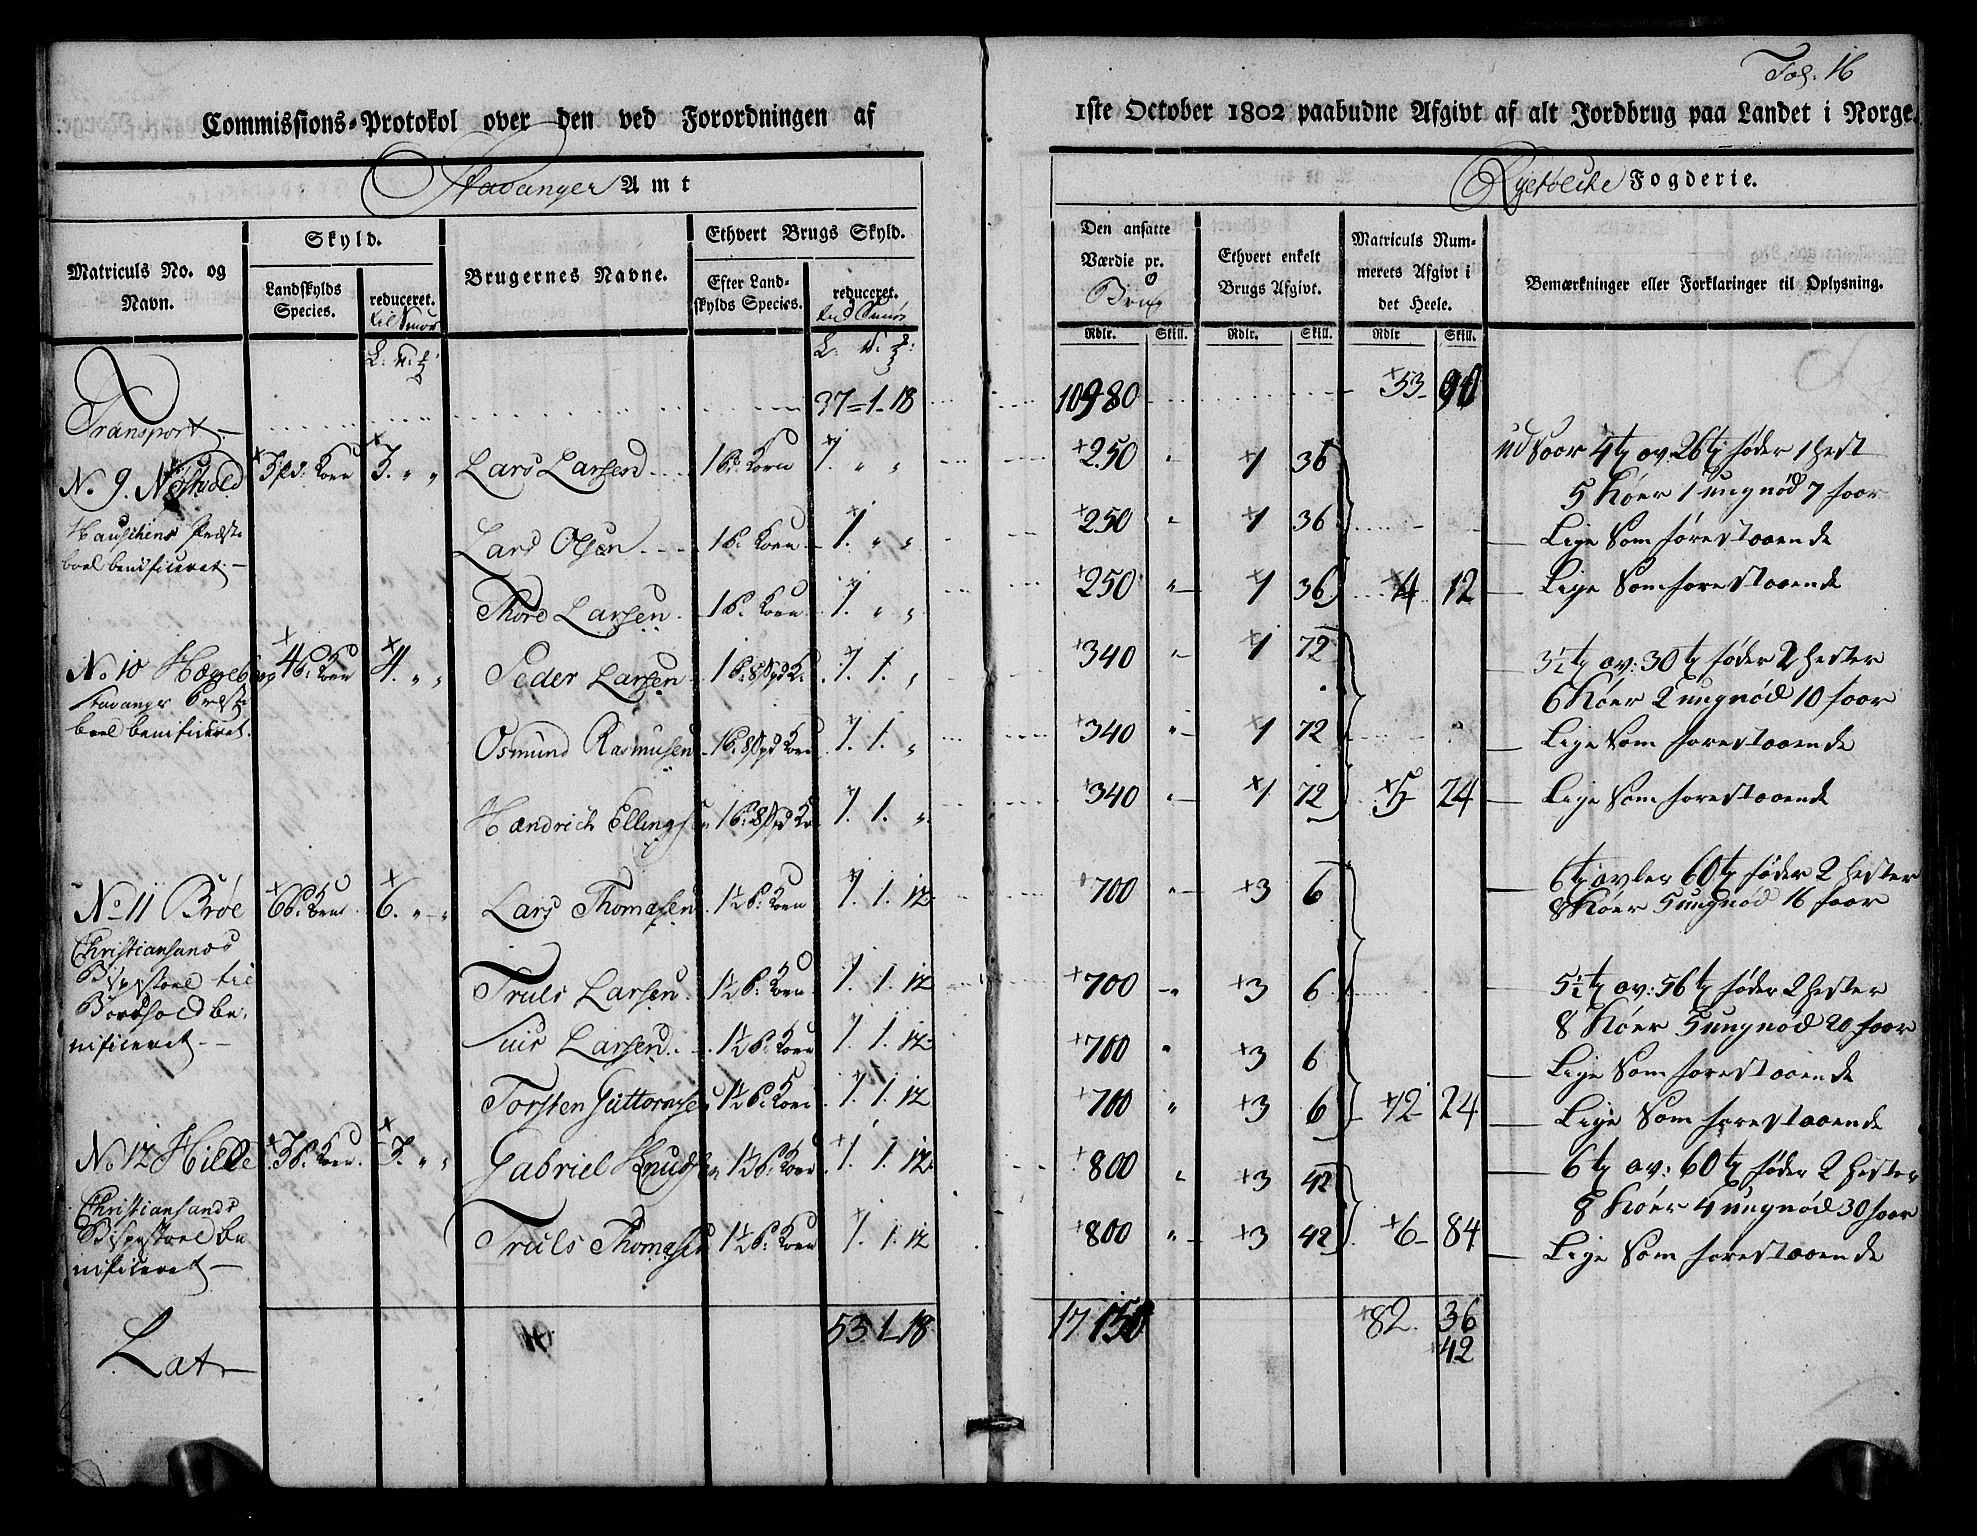 Fol. 16
Commissions-Protokol over den ved Forordningen af 1ste October 1802 paabudne Afgivt af alt Jordbrug paa Landet i Norge.
Stavanger Amt
Fogderie.
Matriculs No. og Navn.
Skyld.
Landskylds Species.
reduceret. til Smør
Brugernes Navne.
Ethvert Brugs Skyld.
Efter Landskylds Species.
reduceret. Smør
Den ansatte Værdie pr. Brug
Ethvert enkelt Brugs Afgivt.
Matriculs Nummerets Afgivt i det Heele.
Bemærkninger eller Forklaringer til Oplysning.
Rdlr. Skill. Rdlr. Skill. Rdlr Skill.
Transport 37 = 1 - 18 10980 53 90
N. 9. 3 pd. Korn 3. " " Lars Larsen 1 Korn 1. " " 250 " 1 36 4 t av: 26 t føder 1 Hest
5 Køer 1 ungnød 7 faar
benificeret
Lars Olsen 1 Korn 1. " " 250 " 1 36 Lige som forestaaende
Thord Larsen 1 Korn 1. " " 250 " 1 36 4 12 Lige som forestaaende
No 10 4 Korn 4. " " Peder Larsen 1. 1. " 340 " 1 72 3½ t av: 30 t føder 2 Hester
6 Køer 2 ungnød 10 faar
benificeret.
Osmund Rasmusen 1. 1. " 340 " 1 72 Lige som forestaaende
Hændrich Ellings 1. 1. " 340 " 1 72 5 24 Lige som forestaaende
No 11 Brøe 6 Korn 6. " " Lars Thomasen 1½ Korn 1. 1. 12 700 " 3 6 6 t avler 60 t føder 2 Hester
8 Køer 5 ungnød 16 faar
Christiansands
Bispestoel til
Bordhold be-
nificeret
Truls Larsen 1½ Korn 1. 1. 12 700 " 3 6 5½ t av: 56 t føder 2 Hester
8 Køer 5 ungnød 20 faar
Larsen 1½ Korn 1. 1. 12 700 " 3 6 Lige som forestaaende
Torsten Guttormse 1½ Korn 1. 1. 12 700 " 3 6 12 24 Lige som forestaaende
No 12 Hille 3 Korn 3. " " Gabriel Knuds 1½ Korn 1. 1. 12 800 " 3 42 6 t av: 60 t føder 2 Hester
8 Køer 4 ungnød 30 faar
Christiansands
Bispestoel be
nificeret
Truls Thomasen 1½ Korn 1. 1. 12 800 " 3 42 6 84 Lige som forestaaende
Lat 53 1 18 17150 82 36
42